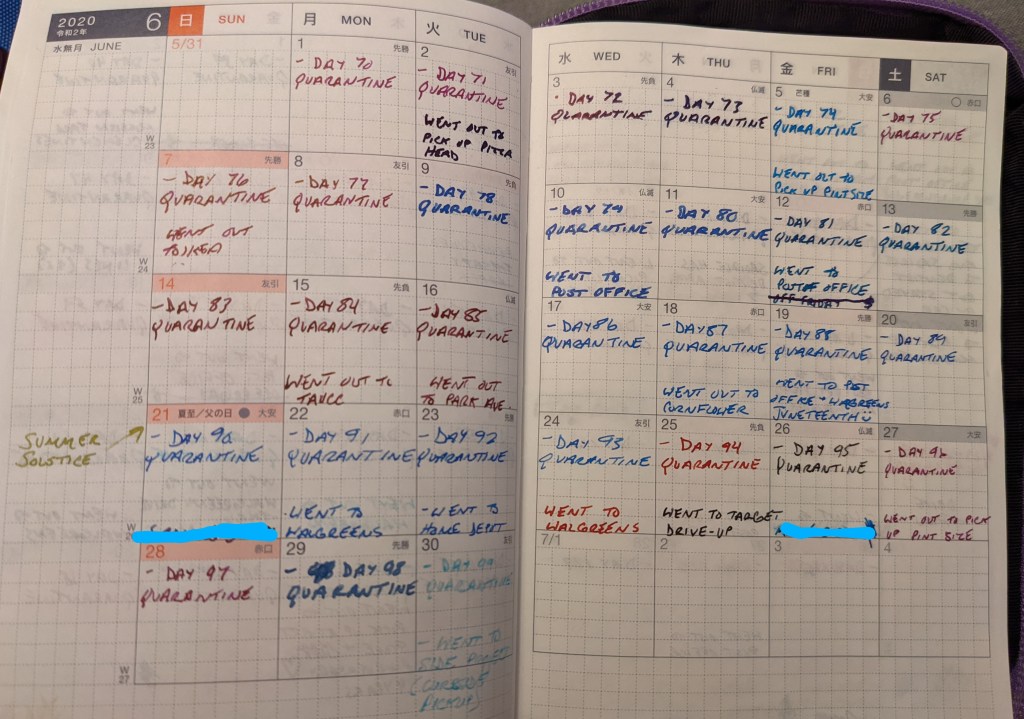 2020
令和2年
6
日 SUN
月 MON
火 TUE
水 WED
木 THU
金 FRI
土 SAT
水無月 JUNE
5/31
1 先勝
- DAY 70
QUARANTINE
2 友引
- DAY 71
QUARANTINE
WENT OUT TO
PICK UP PITTA
HEAD
3 先負
- DAY 72
QUARANTINE
4 仏滅
- DAY 73
QUARANTINE
5 芒種 大安
- DAY 74
QUARANTINE
WENT OUT TO
PICK UP PINT SIZE
6 赤口
- DAY 75
QUARANTINE
W
23
7 先勝
- DAY 76
QUARANTINE
WENT OUT
TO IKEA
8 友引
- DAY 77
QUARANTINE
9 先負
- DAY 78
QUARANTINE
10 仏滅
- DAY 79
QUARANTINE
WENT TO
POST OFFICE
11 大安
- DAY 80
QUARANTINE
12 赤口
- DAY 81
QUARANTINE
WENT TO
POST OFFICE
13 先勝
- DAY 82
QUARANTINE
W
24
14 友引
- DAY 83
QUARANTINE
15 先負
- DAY 84
QUARANTINE
WENT OUT TO
16 仏滅
- DAY 85
QUARANTINE
WENT OUT
TO PARK AVE.
17 大安
- DAY 86
QUARANTINE
18 赤口
- DAY 87
QUARANTINE
WENT OUT TO
CORNFLOWER
19 先勝
- DAY 88
QUARANTINE
WENT TO POST
OFFICE + WALGREENS
JUNETEENTH
20 友引
- DAY 89
QUARANTINE
W
25
SUMMER
SOLSTICE
21 夏至／父の日 大安
- DAY 90
QUARANTINE
22 赤口
- DAY 91
QUARANTINE
- WENT TO
WALGREENS
23 先勝
- DAY 92
QUARANTINE
- WENT TO
HOME DEPOT
24 友引
- DAY 93
QUARANTINE
WENT TO
WALGREENS
25 先負
- DAY 94
QUARANTINE
WENT TO TARGET
DRIVE-UP
26 仏滅
- DAY 95
QUARANTINE
27 大安
- DAY 96
QUARANTINE
WENT OUT TO PICK
UP PINT SIZE
W
28 赤口
- DAY 97
QUARANTINE
29 先勝
- DAY 98
QUARANTINE
30 友引
- DAY 99
QUARANTINE
- WENT TO
(CURBSIDE
PICKUP)
7/1
2
3
4
W
27